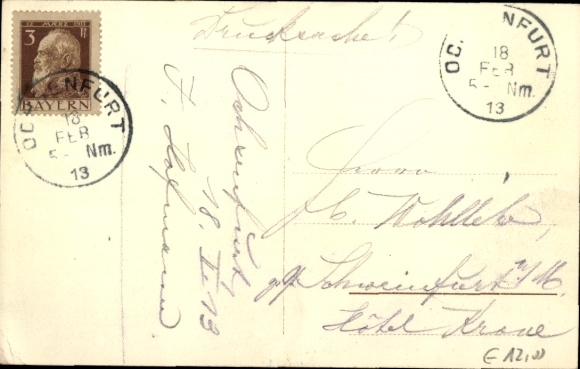 12. MÄRZ 1911
3 Pf
BAYERN
OC NFURT
18
FEB
5- Nm.
13
OC NFURT
18
FEB
5- Nm.
13
Drucksache!
Ochsenfurt,
18. II. 13
F. Hofmann
Herrn
C. Wohlleben,
Schweinfurt a/M.
Hôtel Krone
E 12,00